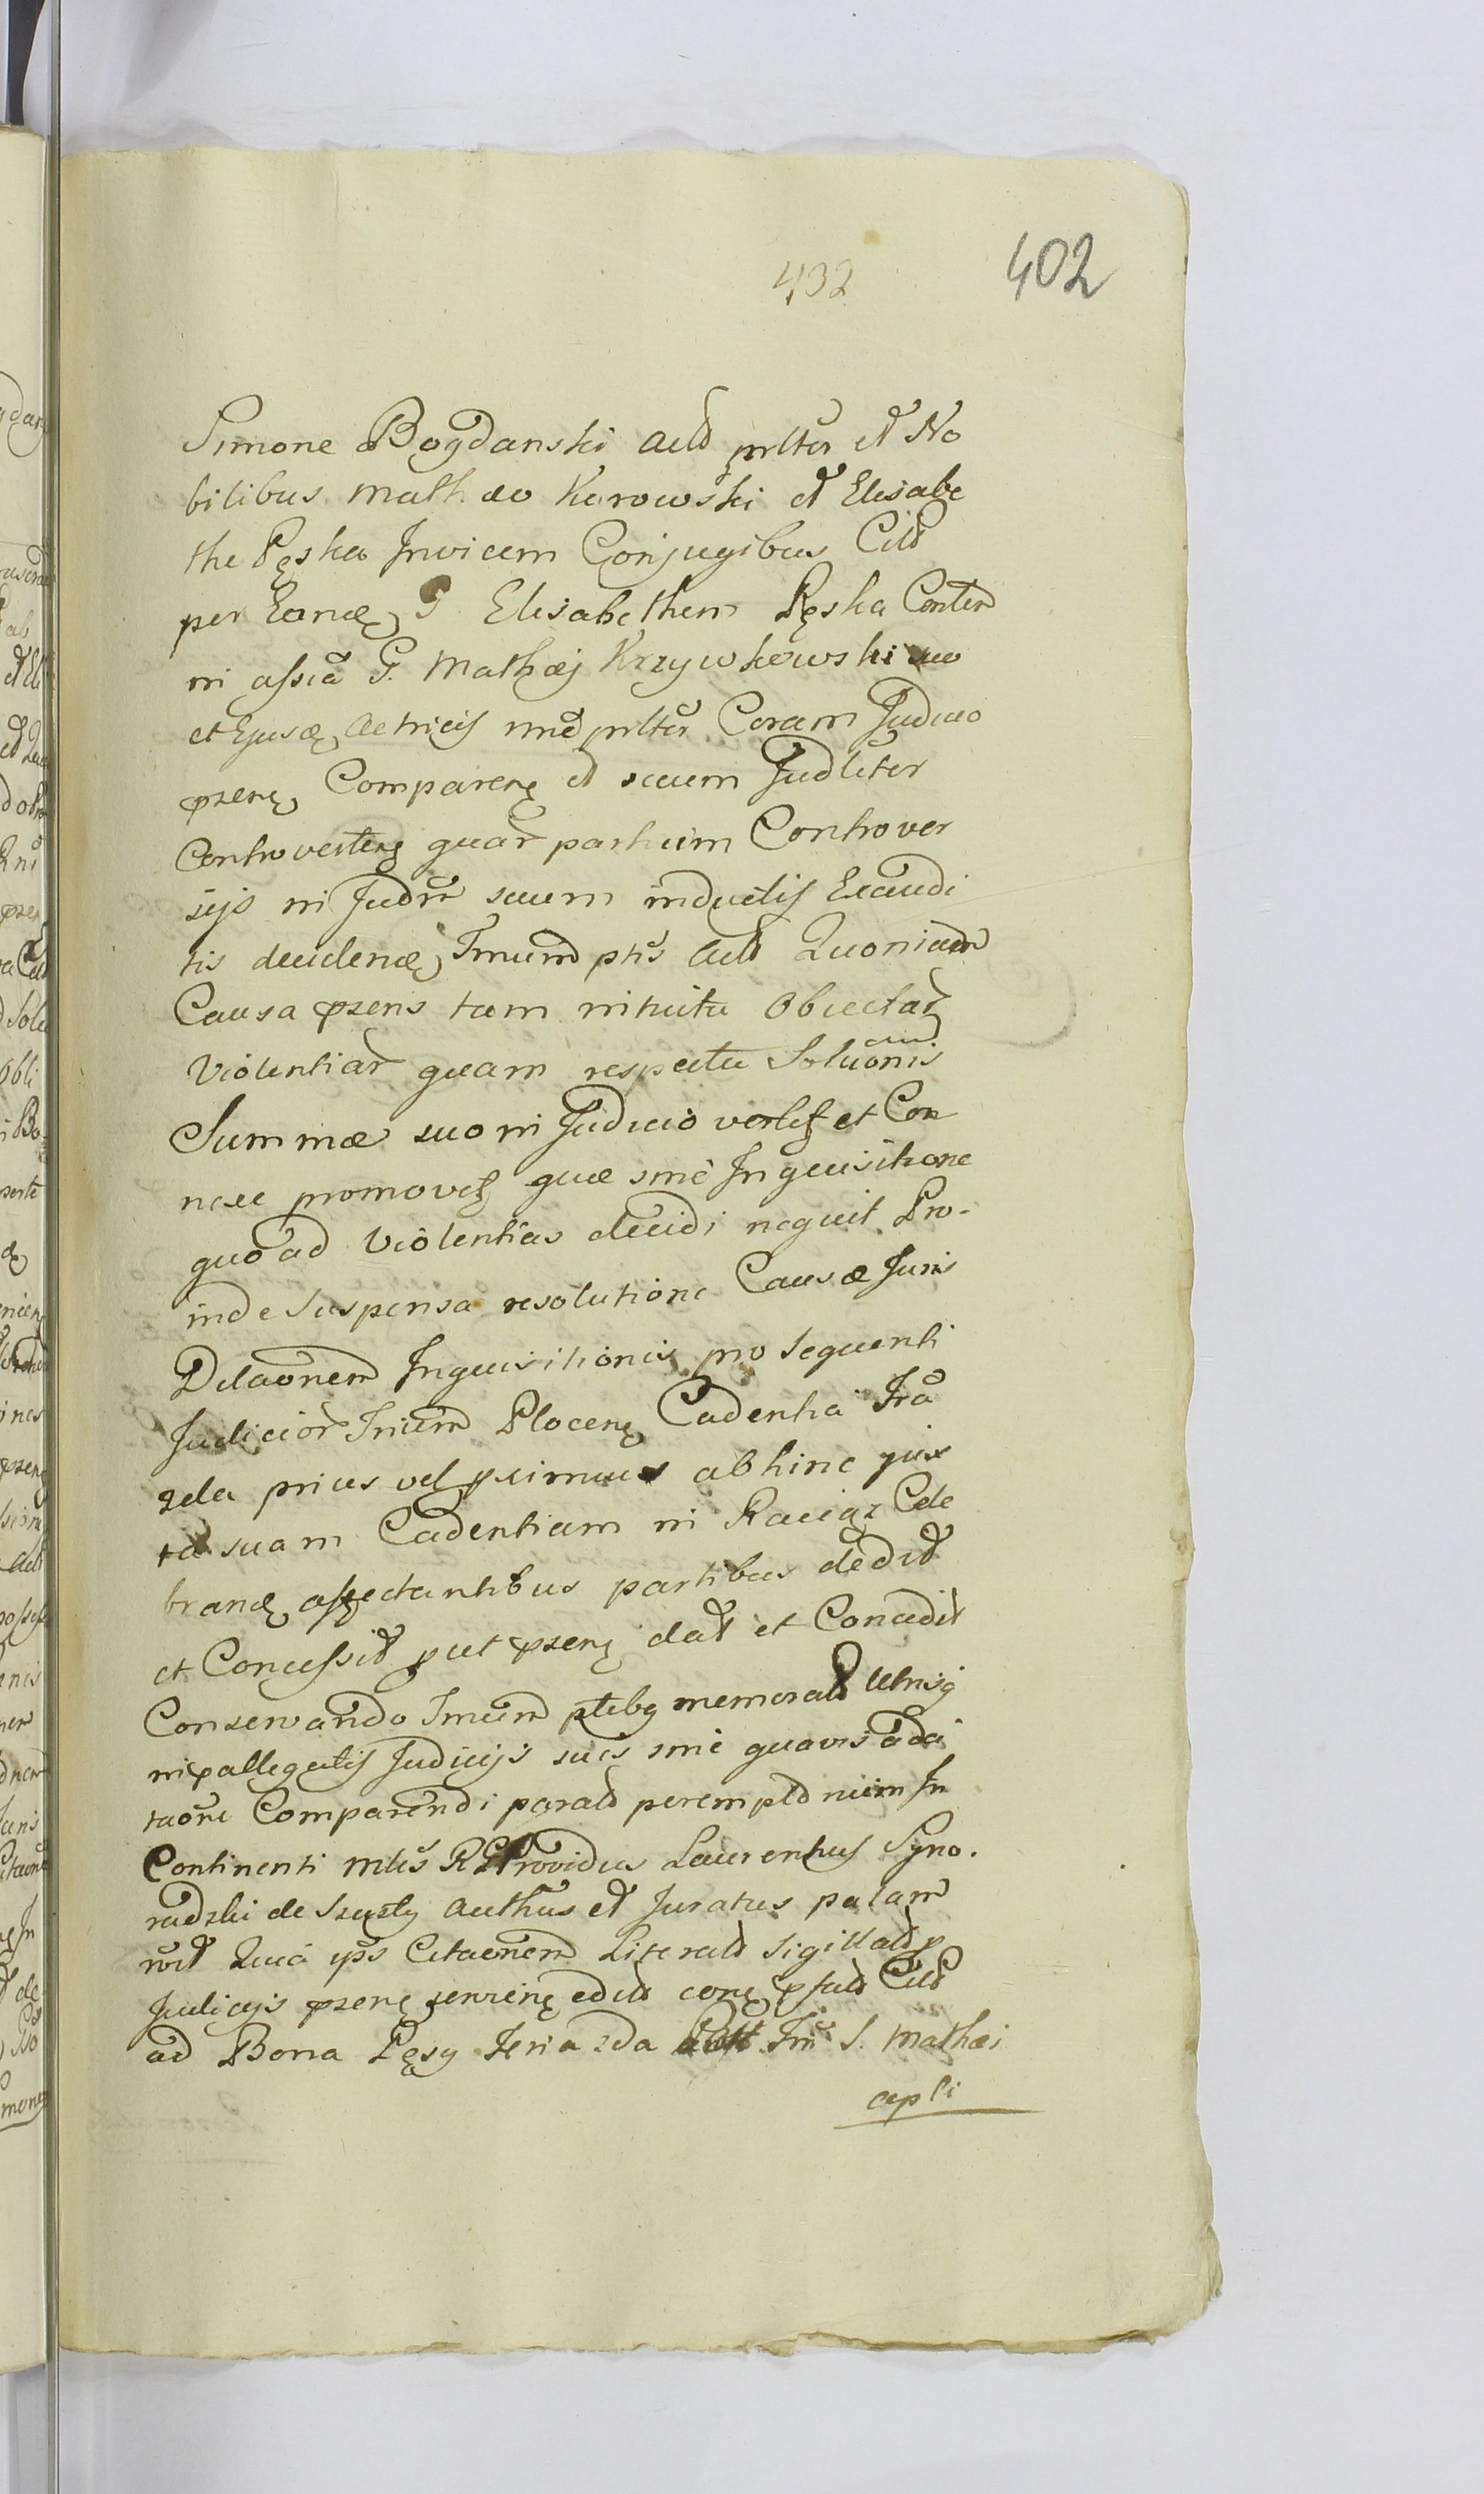 432
402
Simone Bogdanski actũ prltẽr et No
bilibus Mathæo Kurowski et Elisabe
the Pęska Invicem Conjugibus Citĩs
per Eand G Elisabethem Pęska Conten
in assĩa G. Mathæj Krzywkowski suo
et Ejusd Actricis nnẽ prltẽr Coram Judicio
pzenę Comparenę et secum Judlitẽr
Controverteñ quar partium Controver
sijs in Judm secum inductis Exaudi
tis decidend Imum ptis Actũ Quoniam
Causa pzens tam intuitu Obiectar
Violentiar quam respectu Soluonis
Summæ suo in Judicio vertit et Con
nexe promovet quæ sine Inquisitione
quo ad Violentias decidi nequit Pro-
inde Suspensa resolutione Causæ Juris
Dilaõnem Inquisitionis pro Sequenti
Judicior Trium Plocenę Cadentia Fra
zda prius vel pximius abhinc jux
ta suam Cadentiam in Raciąz Cele
brand affectantibus partibus dedit
et Concessit put pzenę dat et Concedit
Conservando Imum ptibg memorat Utrisq
in pallegatis Judicijs suis sine quavis adci
taõne Comparendi parat perempt nium In
Continenti Mlis RG Providus Laurentius Syno.
radzki de Szusty Authũs et Juratus palam
rẽt Quia ips Citaõnem Literalẽ Sigillat p
Judicijs pzenę servienę edit conę pfat Citt
ad Bona Pęsy Feria 2da Post Fm S. Mathæi
apli